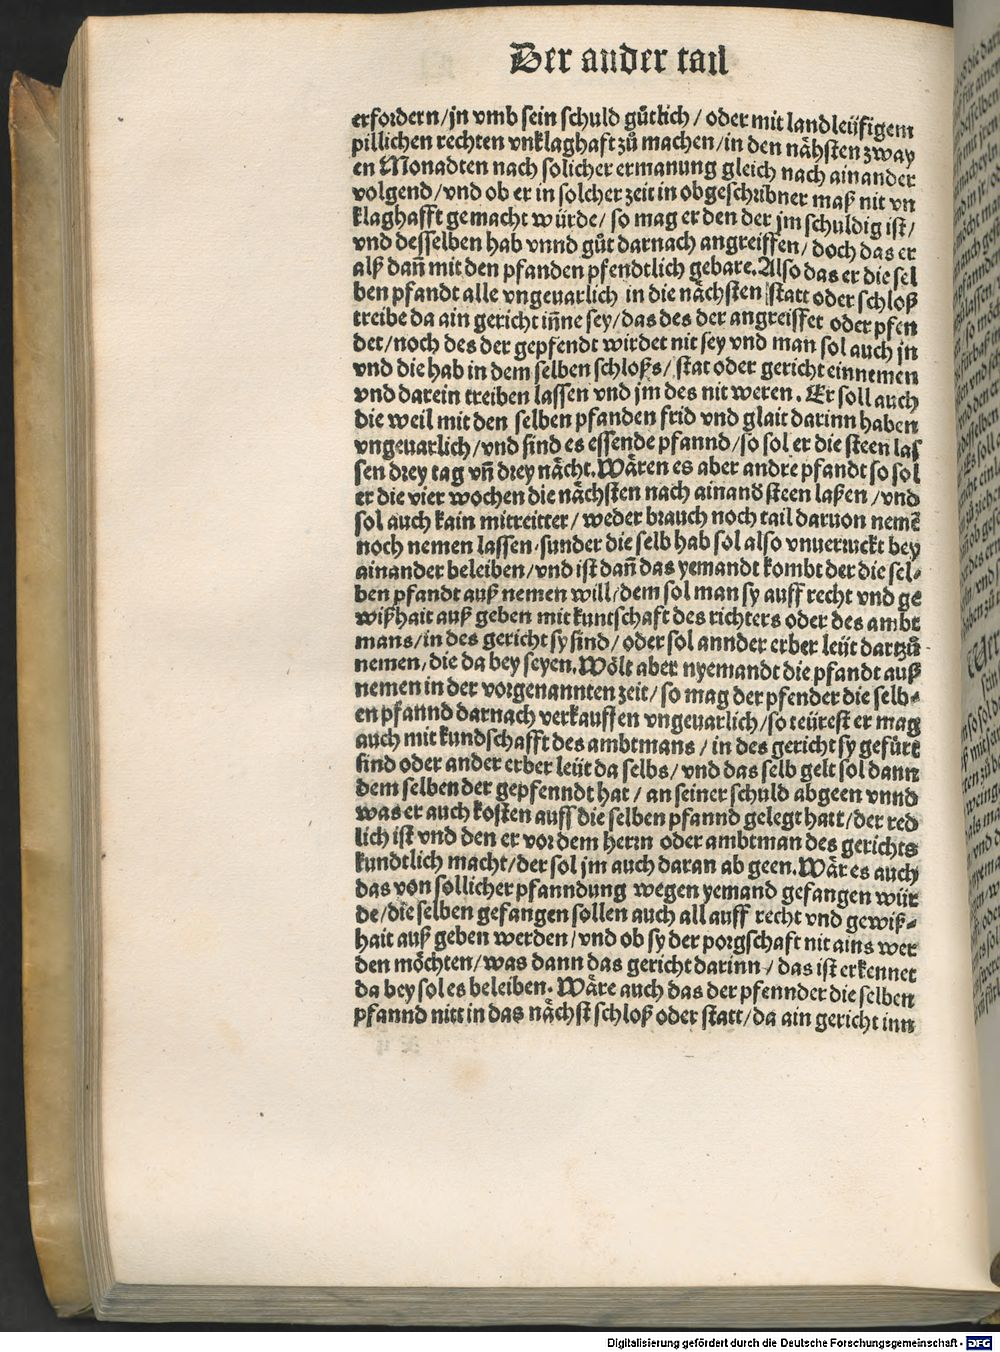 Der ander tail
erfordern/jn vmb sein schuld gůtlich/oder mit landleüfigem
pillichen rechten vnklaghaft zů machen/in den nähsten zway
en Monadten nach solicher ermanung gleich nach ainander
volgend/vnd ob er in solcher zeit in obgeschribner maß nit vn
klaghafft gemacht würde/so mag er den der jm schuldig ist/
vnd desselben hab vnnd gůt darnach angreiffen/doch das er
alß dañ mit den pfanden pfendtlich gebare. Also das er die sel
ben pfandt alle vngeuarlich in die nächsten statt oder schloß
treibe da ain gericht iñne sey/das des der angreiffet oder pfen
det/noch des der gepfendt wirdet nit sey vnd man sol auch jn
vnd die hab in dem selben schloßs/stat oder gericht einnemen
vnd darein treiben lassen vnd jm des nit weren. Er soll auch
die weil mit den selben pfanden frid vnd glait darinn haben
vngeuarlich/vnd sind es essende pfannd/so sol er die steen las
sen drey tag vñ drey nächt. Wären es aber andre pfandt so sol
er die vier wochen die nächsten nach ainand steen laßen/vnd
sol auch kain mitreitter/weder brauch noch tail daruon nemē
noch nemen lassen.sunder die selb hab sol also vnuerruckt bey
ainander beleiben/vnd ist dañ das yemandt kombt der die sel-
ben pfandt auß nemen will/dem sol man sy auff recht vnd ge
wißhait auß geben mit kuntschaft des richters oder des ambt
mans/in des gericht sy sind/oder sol annder erber leüt dartzů
nemen/die da bey seyen. Wölt aber nyemandt die pfandt auß
nemen in der vorgenannten zeit/so mag der pfender die selb-
en pfannd darnach verkauffen vngeuarlich/so teürest er mag
auch mit kundschafft des ambtmans/in des gericht sy gefürt
sind oder ander erber leüt da selbs/vnd das selb gelt sol dann
dem selben der gepfenndt hat/an seiner schuld abgeen vnnd
was er auch kosten auff die selben pfannd gelegt hatt/der red
lich ist vnd den er vor dem herrn oder ambtman des gerichts
kundtlich macht/der sol jm auch daran ab geen. Wär es auch
das von söllicher pfanndung wegen yemand gefangen wür
de/die selben gefangen sollen auch all auff recht vnd gewiß-
hait auß geben werden/vnd ob sy der porgschaft nit ains wer
den möchten/was dann das gericht darinn/das ist erkennet
da bey sol es beleiben. Wäre auch das der pfennder die selben
pfannd nitt in das nächst schloß oder statt/da ain gericht inn
Digitalisierung gefördert durch die Deutsche Forschungsgemeinschaft - DFG